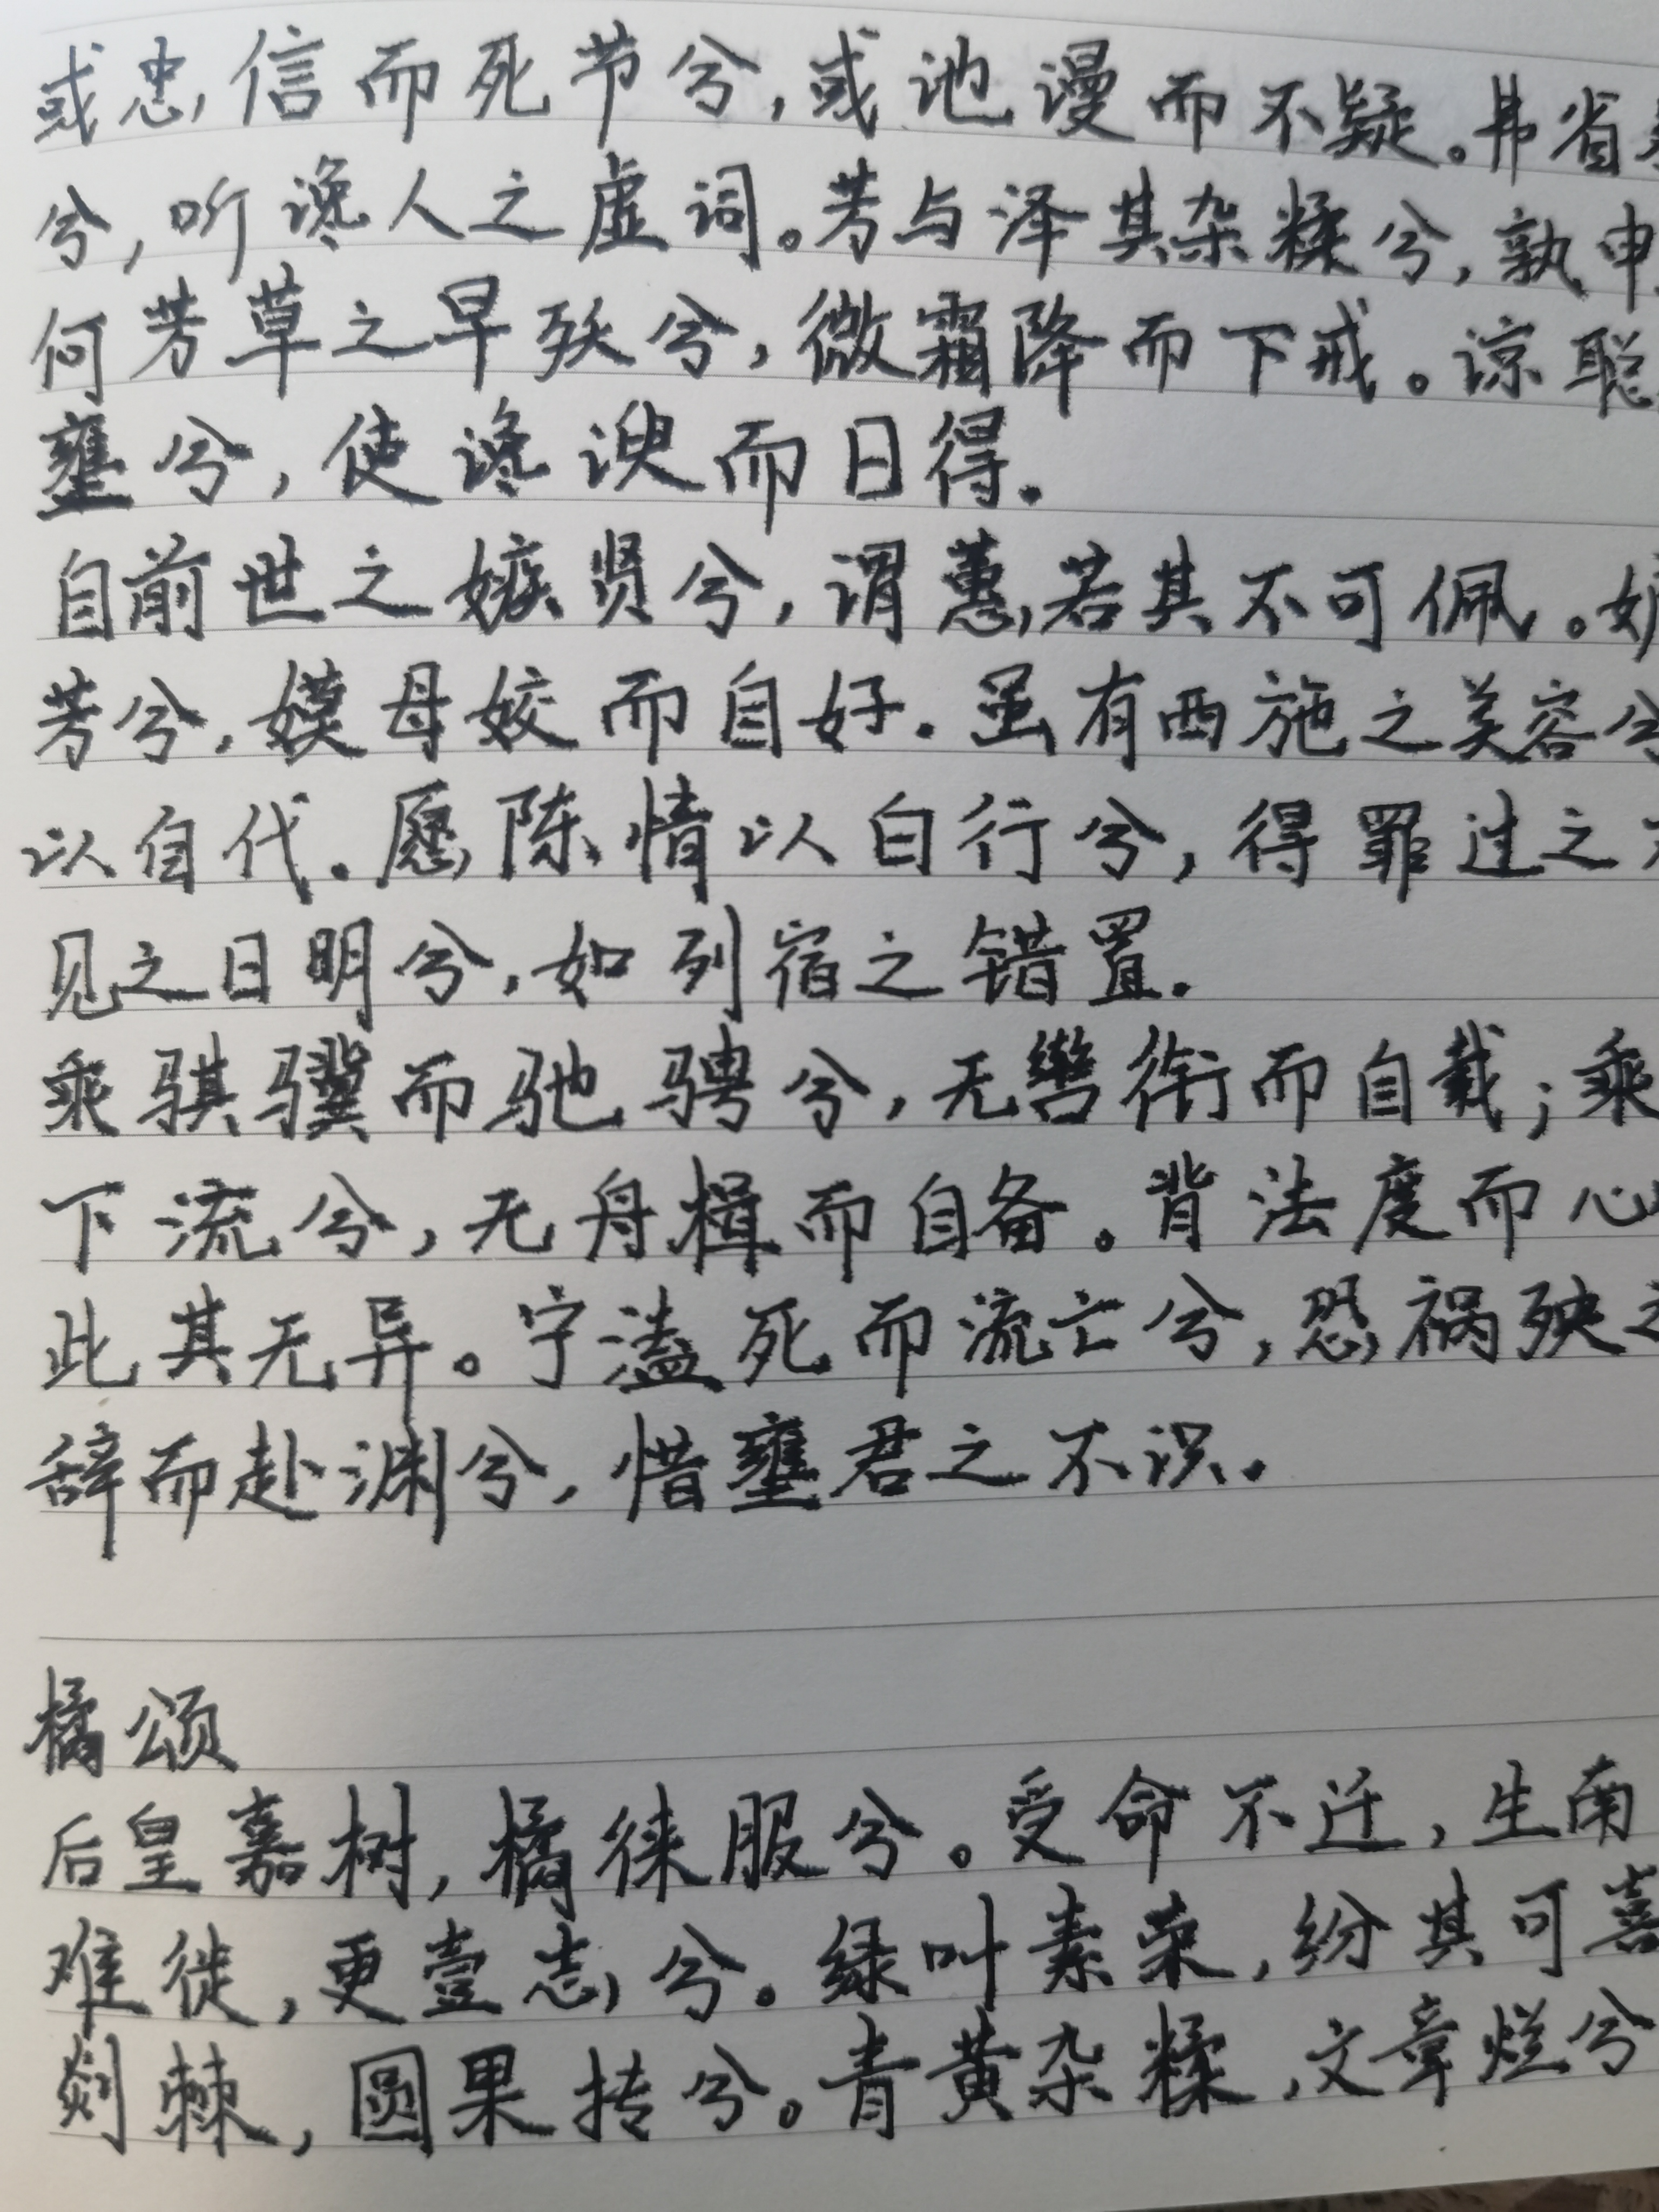 或忠信而死节兮，或訑谩而不疑。弗省
兮，听谗人之虚词。芳与泽其杂糅兮，孰申
何芳草之早殀兮，微霜降而下戒。谅聪
壅兮，使谗谀而日得。
自前世之嫉贤兮，谓蕙若其不可佩。
芳兮，嫫母姣而自好。虽有西施之美容兮
以自代。愿陈情以白行兮，得罪过之
见之日明兮，如列宿之错置。
乘骐骥而驰骋兮，无辔衔而自载；乘
下流兮，无舟楫而自备。背法度而心
此其无异。宁溘死而流亡兮，恐祸殃之
辞而赴渊兮，惜壅君之不识。
橘颂
后皇嘉树，橘徕服兮。受命不迁，生南
难徙，更壹志兮。绿叶素荣，纷其可喜
剡棘，圆果抟兮。青黄杂糅，文章烂兮